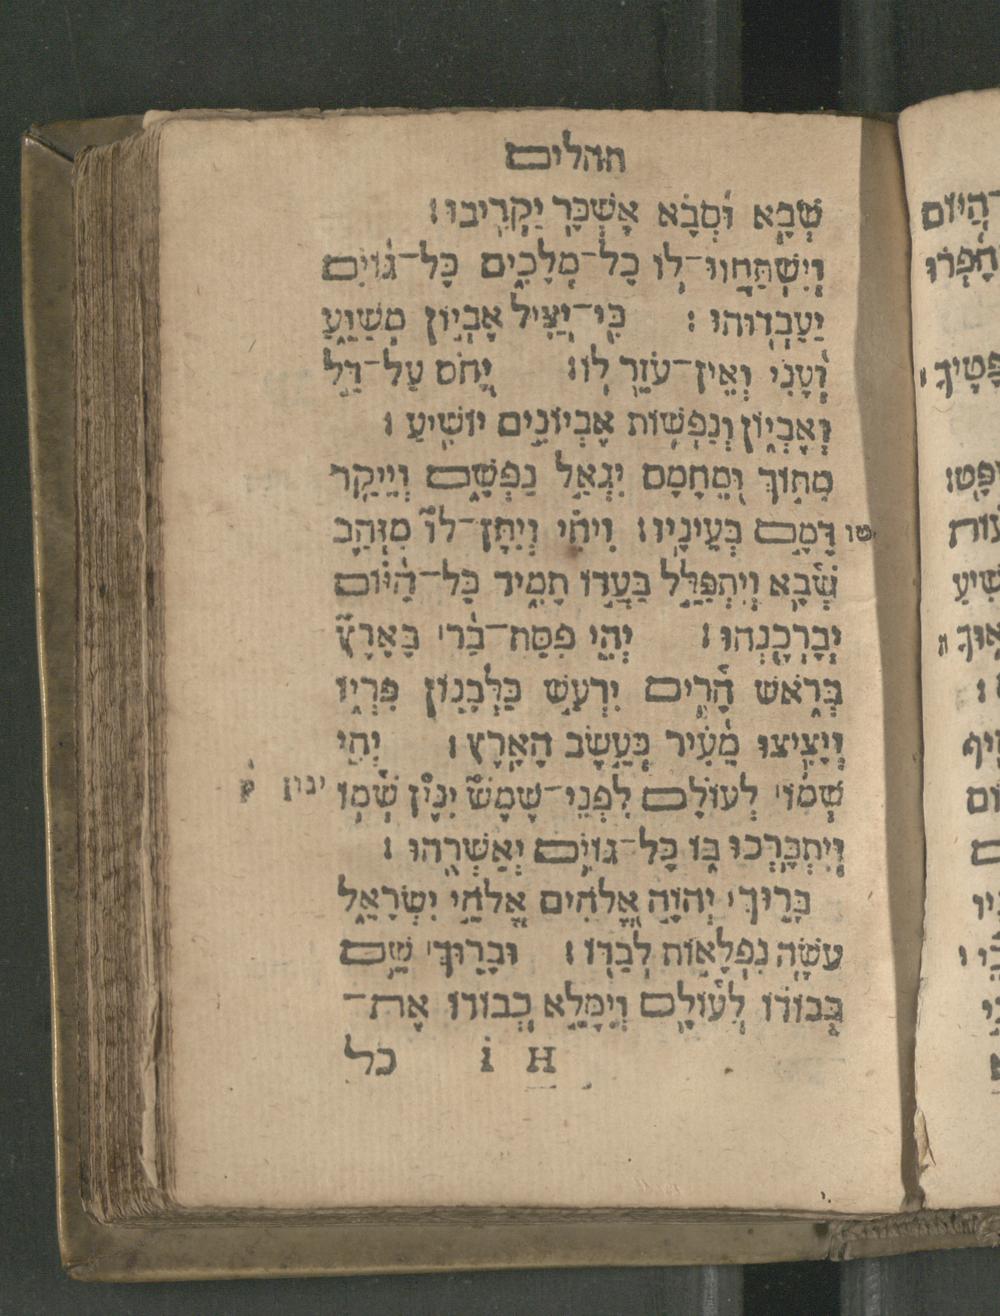 תהלים
שְׁבָא וּסְבָא אֶשְׁכָּר יַקְרִיבוּ׃
וְיִשְׁתַּחֲווּ־לוֹ כָל־מְלָכִים כָּל־גּוֹיִם
יַעַבְדוּהוּ׃ כִּי־יַצִּיל אֶבְיוֹן מְשַׁוֵּעַ
וְעָנִי וְאֵין־עֹזֵר לוֹ׃ יָחֹס עַל־דַּל
וְאֶבְיוֹן וְנַפְשׁוֹת אֶבְיוֹנִים יוֹשִׁיעַ׃
מִתּוֹךְ וּמֵחָמָס יִגְאַל נַפְשָׁם וְיֵיקַר
טו דָּמָם בְּעֵינָיו׃ וִיחִי וְיִתֶּן־לוֹ מִזְּהַב
שְׁבָא וְיִתְפַּלֵּל בַּעֲדוֹ תָמִיד כָּל־הַיּוֹם
יְבָרֲכֶנְהוּ׃ יְהִי פִסַּת־בַּר בָּאָרֶץ
בְּרֹאשׁ הָרִים יִרְעַשׁ כַּלְּבָנוֹן פִּרְיוֹ
וְיָצִיצוּ מֵעִיר כְּעֵשֶׂב הָאָרֶץ׃ יְהִי
שְׁמוֹ לְעוֹלָם לִפְנֵי־שֶׁמֶשׁ יִנִּין שְׁמוֹ ינון ק
וְיִתְבָּרְכוּ בוֹ כָּל־גּוֹיִם יְאַשְּׁרֻהוּ׃
בָּרוּךְ יְהוָה אֱלֹהִים אֱלֹהֵי יִשְׂרָאֵל
עֹשֵׂה נִפְלָאוֹת לְבַדּוֹ׃ וּבָרוּךְ שֵׁם
כְּבוֹדוֹ לְעוֹלָם וְיִמָּלֵא כְבוֹדוֹ אֶת־
H i כל
הַיּוֹם